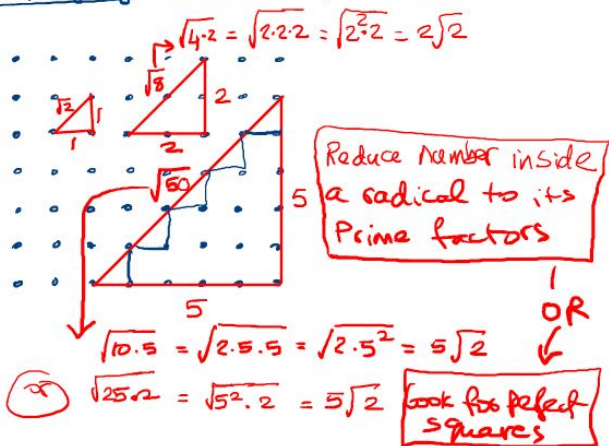 √4·2 = √2·2·2 = √2²·2 = 2√2
√8
√2
1
1
2
2
√50
5
5
Reduce number inside
a radical to its
Prime factors
OR
√10·5 = √2·5·5 = √2·5² = 5√2
or
√25·2 = √5²·2 = 5√2
Look for perfect
squares